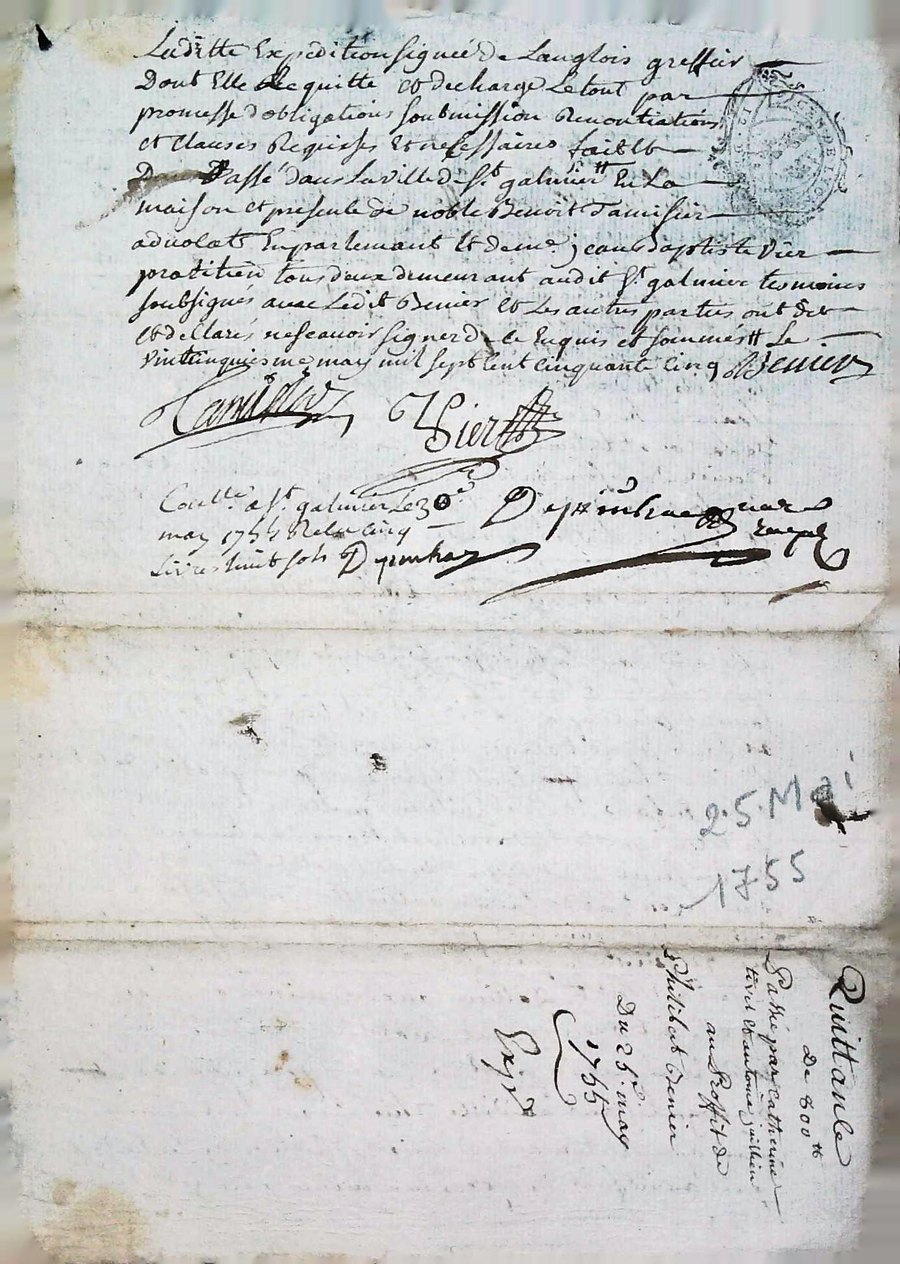 Laditte Expedition signée de Langlois greffier
Dont Elle Le quitte et decharge Le tout par
promesse d'obligations soubmission Renontiations
et Clauses Requises Et necessaires fait Et
Passé dans La ville de St galmier En La
maison et presence de noble Benoit Tamisier
advocat En parlement Et de me. jean Baptiste Vier
pratitien tous deux demeurant audit St. galmier tesmoins
soubsignés avec Ledit Benier et Les autres parties ont dit
et desclarés ne scavoir signer de ce Enquis et sommés Le
vintcinquiesme may mil sept cent cinquante cinq Benier
Tamisier Vier
a St. galmier Le 30e
may 1755 Relu cinq
Livres huit sols
25 Mai
1755
Quittance
De 800 tt
Passé par Catherine
et antoine jullien
au Proffit de
Philibert Benier
Du 25e. may
1755
Expd